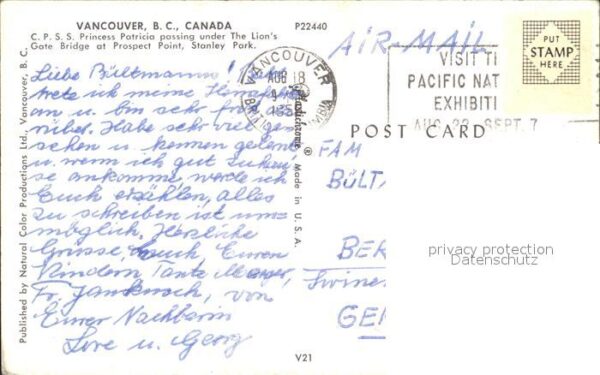 VANCOUVER, B. C., CANADA P22440
C. P. S. S. Princess Patricia passing under The Lion's
Gate Bridge at Prospect Point, Stanley Park.
Liebe Bültmanns! Jetzt
trete ich meine Heimfahrt
an u. bin sehr froh
rüber. Habe sehr viel ge-
sehen u. kennen gelernt
u. wenn ich gut zuhau-
se ankomme, werde ich
Euch erzählen, alles
zu schreiben ist un-
möglich. Herzliche
Grüsse, auch Euren
Kindern, Tante
Fr. von
Eurer Nachbarin
Lore u. Georg
Published by Natural Color Productions Ltd., Vancouver, B. C.
V21
Made in U. S. A.
AIR-MAIL
VANCOUVER
AUG 18
BRITISH COLUMBIA
VISIT TI
PACIFIC NAT
EXHIBITI
AUG. 22 - SEPT. 7
PUT
STAMP
HERE
POST CARD
FAM
BÜLT
BER
Swine
GE
privacy protection
Datenschutz